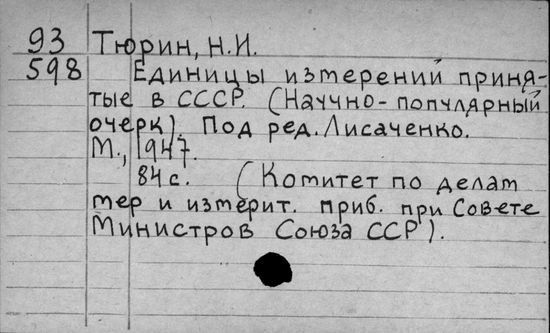 93 Тюрин, Н.И.
598 Единицы измерений приня-
тые в СССР. (Научно-популярный
очерк). Под ред. Лисаченко.
М., 1947.
84 с. (Комитет по делам
мер и измерит. приб. при Совете
Министров Союза ССР).